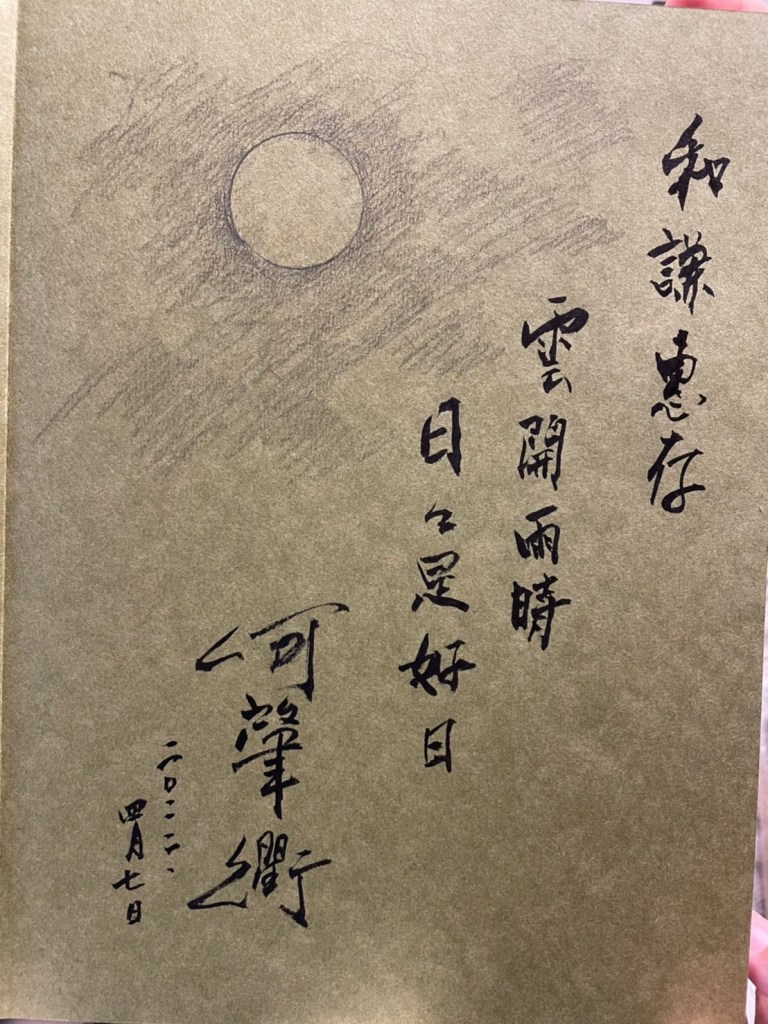 和謙惠存
雲開雨晴
日々是好日
何肇衢
二〇二二、
四月七日